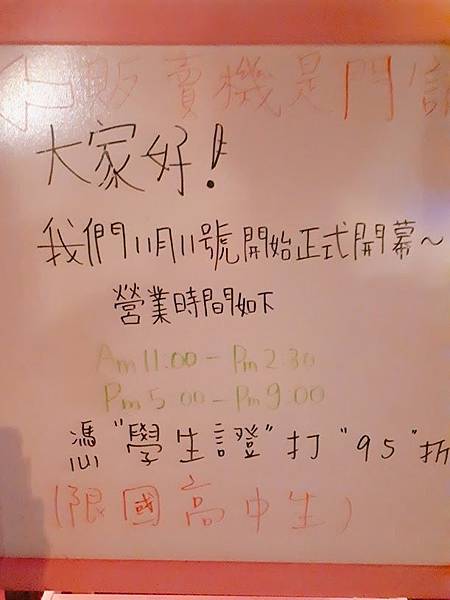 ←販賣機是門
大家好！
我們11月11號開始正式開幕～
營業時間如下
Am 11:00 - Pm 2:30
Pm 5:00 - Pm 9:00
憑"學生證"打"95"折
(限國高中生)